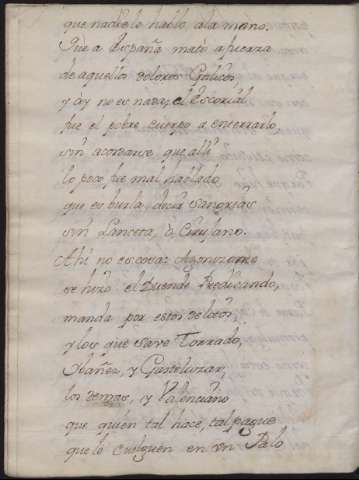 que nadie le hablo, ala mano.
Que a España mató a fuerza
de aquellos dolores Galicos,
y ay no es nada, el escorial
fue el pobre cuerpo a enterrarlo,
sin acordarse, que alli
lo poco fue mal hablado,
que es burla, decir sangrias
sin Lanceta, o Cirujano.
Ahi no es cosa: Agonizante
se hizo el Duende Predicando,
manda por estos
y los que save Torrado,
Ibañez, y Gasteluzar,
los demas, y Valenciano
que quien tal hace, tal pague
que lo cuelguen en un Palo